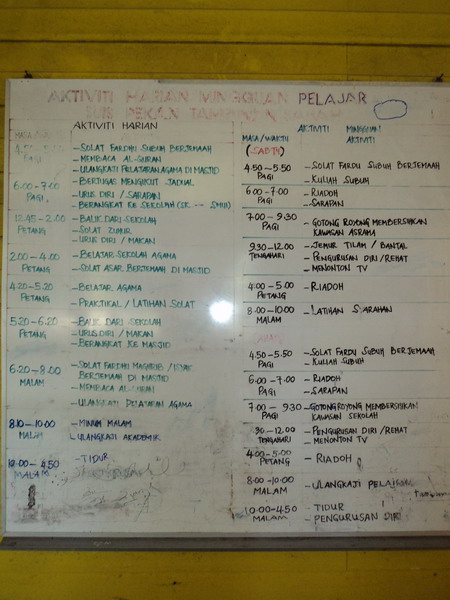 AKTIVITI HARIAN MINGGUAN PELAJAR
PEKAN
AKTIVITI HARIAN
PAGI
- SOLAT FARDHU SUBUH BERJEMAAH
- MEMBACA AL-QURAN
- ULANGKAJI PELAJARAN AGAMA DI MASJID
6.00 - 7.00
PAGI
- BERTUGAS MENGIKUT JADUAL
- URUS DIRI / SARAPAN
- BERANGKAT KE SEKOLAH (SK -- SMU)
12.45 - 2.00
PETANG
- BALIK DARI SEKOLAH
- SOLAT ZUHUR
- URUS DIRI / MAKAN
2.00 - 4.00
PETANG
- BELAJAR SEKOLAH AGAMA
- SOLAT ASAR BERJEMAH DI MASJID
4.20 - 5.20
PETANG
- BELAJAR AGAMA
- PRAKTIKAL / LATIHAN SOLAT
5.20 - 6.20
PETANG
- BALIK DARI SEKOLAH
- URUS DIRI / MAKAN
- BERANGKAT KE MASJID
6.20 - 8.00
MALAM
- SOLAT FARDHU MAGHRIB / ISYAK
BERJEMAAH DI MASJID
- MEMBACA AL-QURAN
- ULANGKAJI PELAJARAN AGAMA
8.10 - 10.00
MALAM
- MINUM MALAM
- ULANGKAJI AKADEMIK
10.00 - 4.50
MALAM
- TIDUR
MASA/WAKTU
(SABTU)
AKTIVITI MINGGUAN
AKTIVITI
4.50 - 5.50
PAGI
- SOLAT FARDU SUBUH BERJEMAAH
- KULIAH SUBUH
6.00 - 7.00
PAGI
- RIADOH
- SARAPAN
7.00 - 9.30
PAGI
- GOTONG ROYONG MEMBERSIHKAN
KAWASAN ASRAMA
9.30 - 12.00
TENGAHARI
- JEMUR TILAM / BANTAL
- PENGURUSAN DIRI / REHAT
- MENONTON TV
4.00 - 5.00
PETANG
- RIADOH
8.00 - 10.00
MALAM
- LATIHAN
4.50 - 5.50
PAGI
- SOLAT FARDU SUBUH BERJEMAAH
- KULIAH SUBUH
6.00 - 7.00
PAGI
- RIADOH
- SARAPAN
7.00 - 9.30
PAGI
- GOTONG ROYONG MEMBERSIHKAN
KAWASAN SEKOLAH
30 - 12.00
TENGAHARI
- PENGURUSAN DIRI / REHAT
- MENONTON TV
4.00 - 5.00
PETANG
- RIADOH
8.00 - 10.00
MALAM
- ULANGKAJI
10.00 - 4.50
MALAM
- TIDUR
- PENGURUSAN DIRI